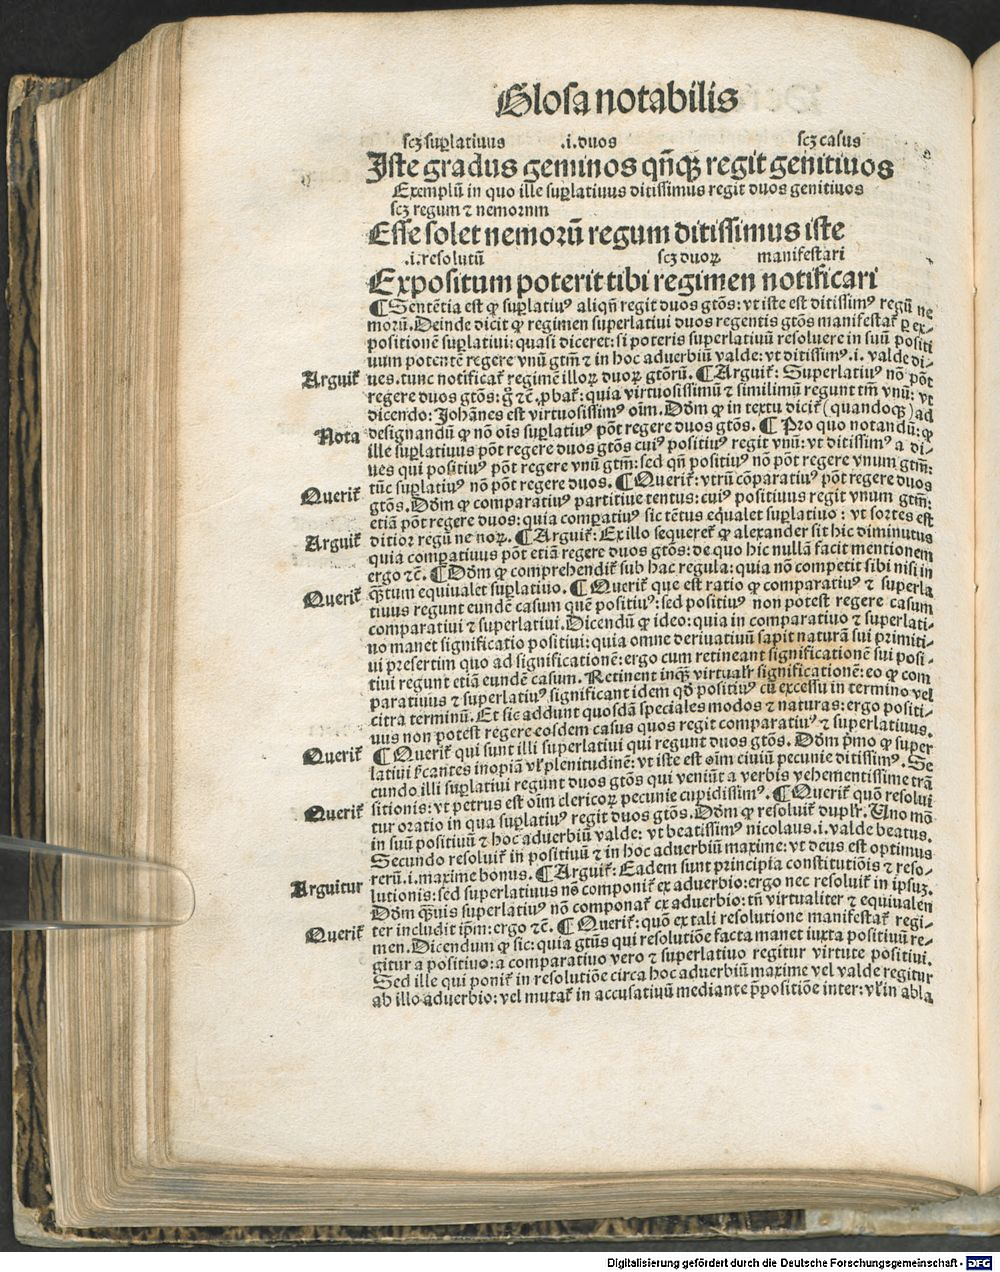 Glosa notabilis
scꝫ suꝑlatiuus .i. duos scꝫ casus
Iste gradus geminos qñqꝫ regit genitiuos
Exemplũ in quo ille suꝑlatiuus ditissimus regit duos genitiuos
scꝫ regum ⁊ nemorum
Esse solet nemorũ regum ditissimus iste
.i. resolutũ scꝫ duoꝝ manifestari
Expositum poterit tibi regimen notificari
¶ Sentẽtia est ꝙ suꝑlatiuꝰ aliqñ regit duos gt̃os: vt iste est ditissimꝰ regũ ne
morũ. Deinde dicit ꝙ regimen superlatiui duos regentis gt̃os manifestat᷒ ꝑ ex-
positionẽ suꝑlatiui: quasi diceret: si poteris superlatiuũ resoluere in suũ positi
uum potentẽ regere vnũ gtm̃ ⁊ in hoc aduerbiũ valde: vt ditissimꝰ .i. valde di-
Arguit᷒ ues. tunc notificat᷒ regimẽ illoꝝ duoꝝ gt̃orũ. ¶ Arguit᷒: Superlatiuꝰ nõ põt
regere duos gt̃os: g̃ ⁊c̃. ꝓbat᷒: quia virtuosissimũ ⁊ similimũ regunt tm̃ vnũ: vt
dicendo: Johãnes est virtuosissimꝰ oĩm. Dõm ꝙ in textu dicit᷒ (quandoqꝫ) ad
Nota designandũ ꝙ nõ oĩs suꝑlatiuꝰ põt regere duos gt̃os. ¶ Pro quo notandũ: ꝙ
ille suꝑlatiuus põt regere duos gt̃os cuiꝰ positiuꝰ regit vnũ: vt ditissimꝰ a di-
ues qui positiuꝰ põt regere vnũ gtm̃: sed qñ positiuꝰ nõ põt regere vnum gtm̃:
Querit᷒ tũc suꝑlatiuꝰ nõ põt regere duos. ¶ Querit᷒: vtrũ cõparatiuꝰ põt regere duos
gt̃os. Dõm ꝙ comparatiuꝰ partitiue tentus: cuiꝰ positiuus regit vnum gtm̃:
etiã põt regere duos: quia comꝑatiuꝰ sic tẽtus equalet suꝑlatiuo: vt sortes est
Arguit᷒ ditior regũ ne noꝝ. ¶ Arguit᷒: Ex illo sequeret᷒ ꝙ alexander sit hic diminutus
quia comꝑatiuus põt etiã regere duos gt̃os: de quo hic nullã facit mentionem
ergo ⁊c̃. ¶ Dõm ꝙ comprehendit᷒ sub hac regula: quia nõ competit sibi nisi in
Querit᷒ q̃tum equiualet suꝑlatiuo. ¶ Querit᷒ que est ratio ꝙ comparatiuꝰ ⁊ superla
tiuus regunt eundẽ casum quẽ positiuꝰ: sed positiuꝰ non potest regere casum
comparatiui ⁊ superlatiui. Dicendũ ꝙ ideo: quia in comparatiuo ⁊ superlati-
uo manet significatio positiui: quia omne deriuatiuũ sapit naturã sui primiti-
ui presertim quo ad significationẽ: ergo cum retineant significationẽ sui posi-
tiui regunt etiã eundẽ casum. Retinent inqꝫ virtualr̃ significationẽ: eo ꝙ com
paratiuus ⁊ superlatiuꝰ significant idem qd̾ positiuꝰ cũ excessu in termino vel
citra terminũ. Et sic addunt quosdã speciales modos ⁊ naturas: ergo positi-
uus non potest regere eosdem casus quos regit comparatiuꝰ ⁊ superlatiuus.
Querit᷒ ¶ Querit᷒ qui sunt illi superlatiui qui regunt duos gt̃os. Dõm p̃mo ꝙ super
latiui s̃cantes inopiã vl̾ plenitudinẽ: vt iste est oĩm ciuiũ pecunie ditissimꝰ. Se
cundo illi suꝑlatiui regunt duos gt̃os qui veniũt a verbis vehementissime trã
Querit᷒ sitionis: vt petrus est oĩm clericoꝝ pecunie cupidissimꝰ. ¶ Querit᷒ quõ resolui
tur oratio in qua suꝑlatiuꝰ regit duos gt̃os. Dõm ꝙ resoluit᷒ duplr̃. Uno mõ
in suũ positiuũ ⁊ hoc aduerbiũ valde: vt beatissimꝰ nicolaus .i. valde beatus.
Secundo resoluit᷒ in positiuũ ⁊ in hoc aduerbiũ maxime: vt deus est optimus
Arguitur rerũ .i. maxime bonus. ¶ Arguit᷒: Eadem sunt principia constitutiõis ⁊ reso-
lutionis: sed superlatiuus nõ componit᷒ ex aduerbio: ergo nec resoluit᷒ in ipsuꝫ.
Dõm q̃uis superlatiuꝰ nõ componat᷒ ex aduerbio: tñ virtualiter ⁊ equiualen
Querit᷒ ter includit ip̃m: ergo ⁊c̃. ¶ Querit᷒: quõ ex tali resolutione manifestat᷒ regi-
men. Dicendum ꝙ sic: quia gt̃us qui resolutiõe facta manet iuxta positiuũ re-
gitur a positiuo: a comparatiuo vero ⁊ superlatiuo regitur virtute positiui.
Sed ille qui ponit᷒ in resolutiõe circa hoc aduerbiũ maxime vel valde regitur
ab illo aduerbio: vel mutat᷒ in accusatiuũ mediante p̃positiõe inter: vl̾ in abla
Digitalisierung gefördert durch die Deutsche Forschungsgemeinschaft - DFG